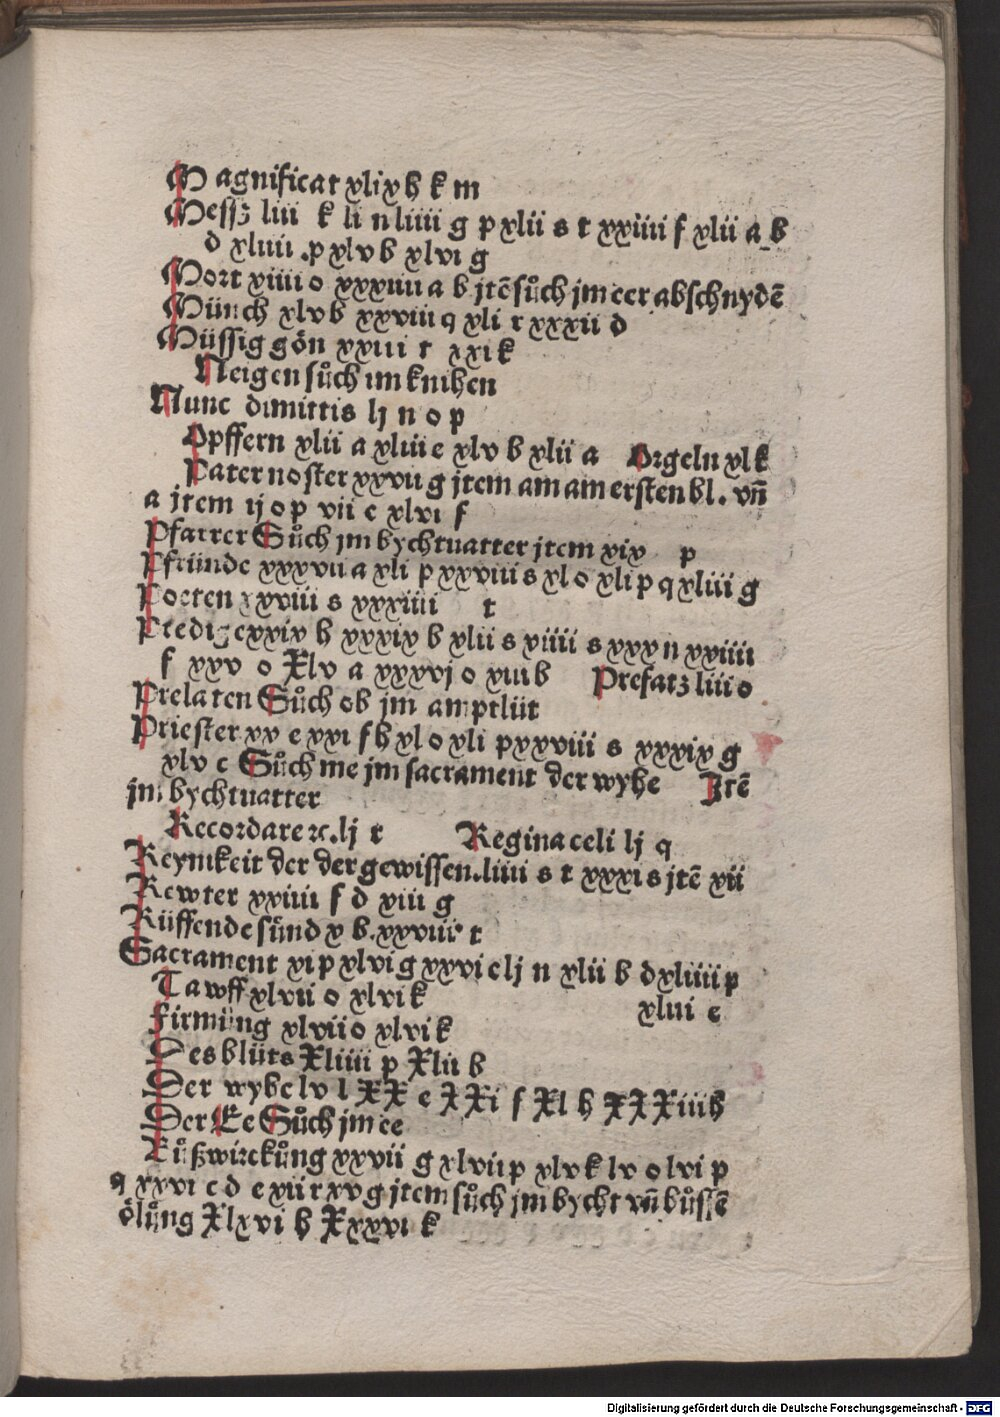 Magnificat xlix h k m
Messz liii k li n liiii g p xlii s t xxiiii f xlii a b
d xliiii .p xlv b xlvi g
Mort xiiii o xxxiiii a b jtē sůch jm eer abschnydē
Münch xlv b xxviii q xli r xxxii d
Müssig gön xxiii t xxi k
Neigen sůch im knihen
Nunc dimittis lj n o p
Opffern xlii a xliii e xlv b xlii a Orgeln xl k
Pater noster xxvii g jtem am am ersten bl. vn̄
a jtem ij o p vii e xlvi f
Pfarrer Sůch jm bychtuatter jtem xix p
Pfründe xxxvii a xli p xxviii s xl o xli p q xliii g
Poeten xxviii s xxxiiii t
Predige xxix h xxxix b xlii s viiii s xxx n xxiiii
f xxv o Xlv a xxxvj o xiii b Prefatz liii o
Prelaten Sůch ob jm amptlüt
Priester xx e xxi f h xl o xli p xxviii s xxxix g
xlv c Sůch me jm sacrament der wyhe Jtē
jm bychtuatter
Recordare ꝛc. lj r Regina celi lj q
Reynikeit der der gewissen. liiii s t xxxi s jtē xii
Rewter xxiiii f d xiii g
Rüffende sůnd x b. xxviii t
Sacrament xi p xlvi g xxvi c lj n xlii b d xliiii p
Tawff xlvii o xlvi k xliii e
Firmüng xlvii o xlvi k
Des blüts Xliiii p Xlii b
Der wyhe lv l XX e XXi f Xl h XXXiii h
Der Ee Sůch jm ee
Růßwirckůng xxvii g xlvii p xlv k lv o lvi p
q xxvi c d e xii r xv g jtem sůch jm bycht vn̄ bůssē
ölůng Xlxvi h Xxxvi k
Digitalisierung gefördert durch die Deutsche Forschungsgemeinschaft - DFG